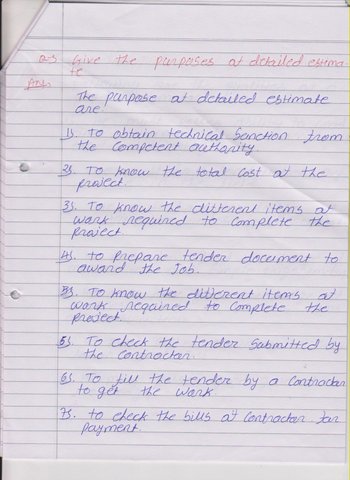 Q-3 Give the purposes at detailed estima
te
Ans.
The purpose at detailed estimate
are
1). To obtain technical Sanction from
the Competent authority.
2). To know the total cost at the
project
3). To know the different items at
work required to Complete the
project
4). to prepare tender document to
award the job.
5). To know the different items at
work required to Complete the
project
5). To check the tender submitted by
the Contractor.
6). To fill the tender by a Contractor
to get the work
7). to check the bills at Contractor for
payment.